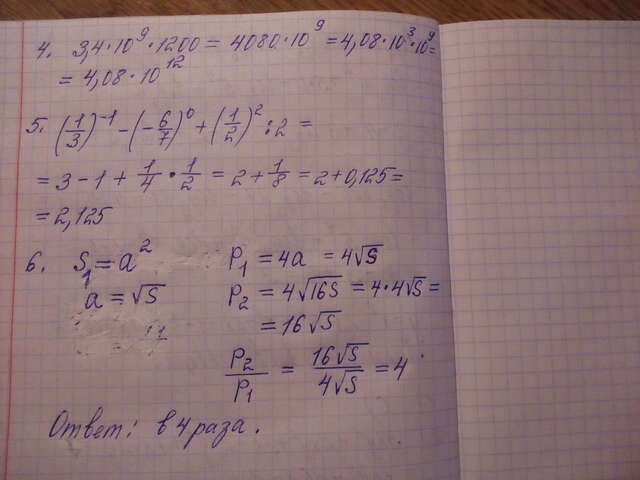 4. 3,4·10⁹·1200 = 4080·10⁹ = 4,08·10³·10⁹=
= 4,08·10¹²
5. (1/3)⁻¹ - (-6/7)⁰ + (1/2)² : 2 =
= 3 - 1 + 1/4 · 1/2 = 2 + 1/8 = 2 + 0,125 =
= 2,125
6. S₁ = a² P₁ = 4a = 4√S
a = √S P₂ = 4√16S = 4·4√S =
= 16√S
P₂/P₁ = 16√S/4√S = 4
Ответ: в 4 раза.